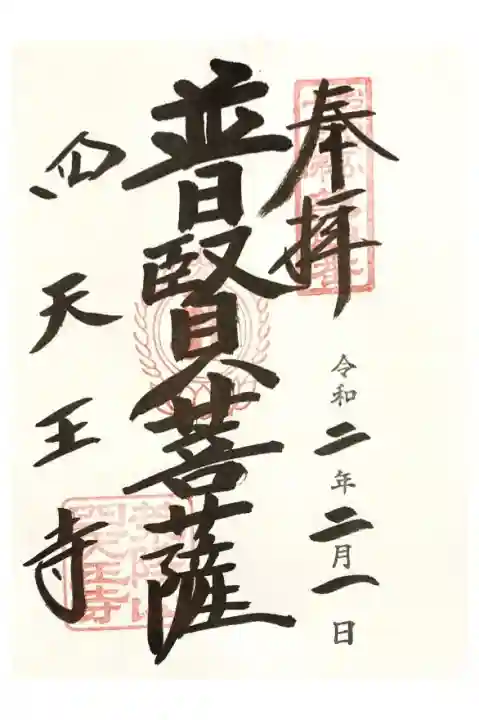 奉拝
令和二年二月一日
普賢菩薩
四天王寺
四天王寺